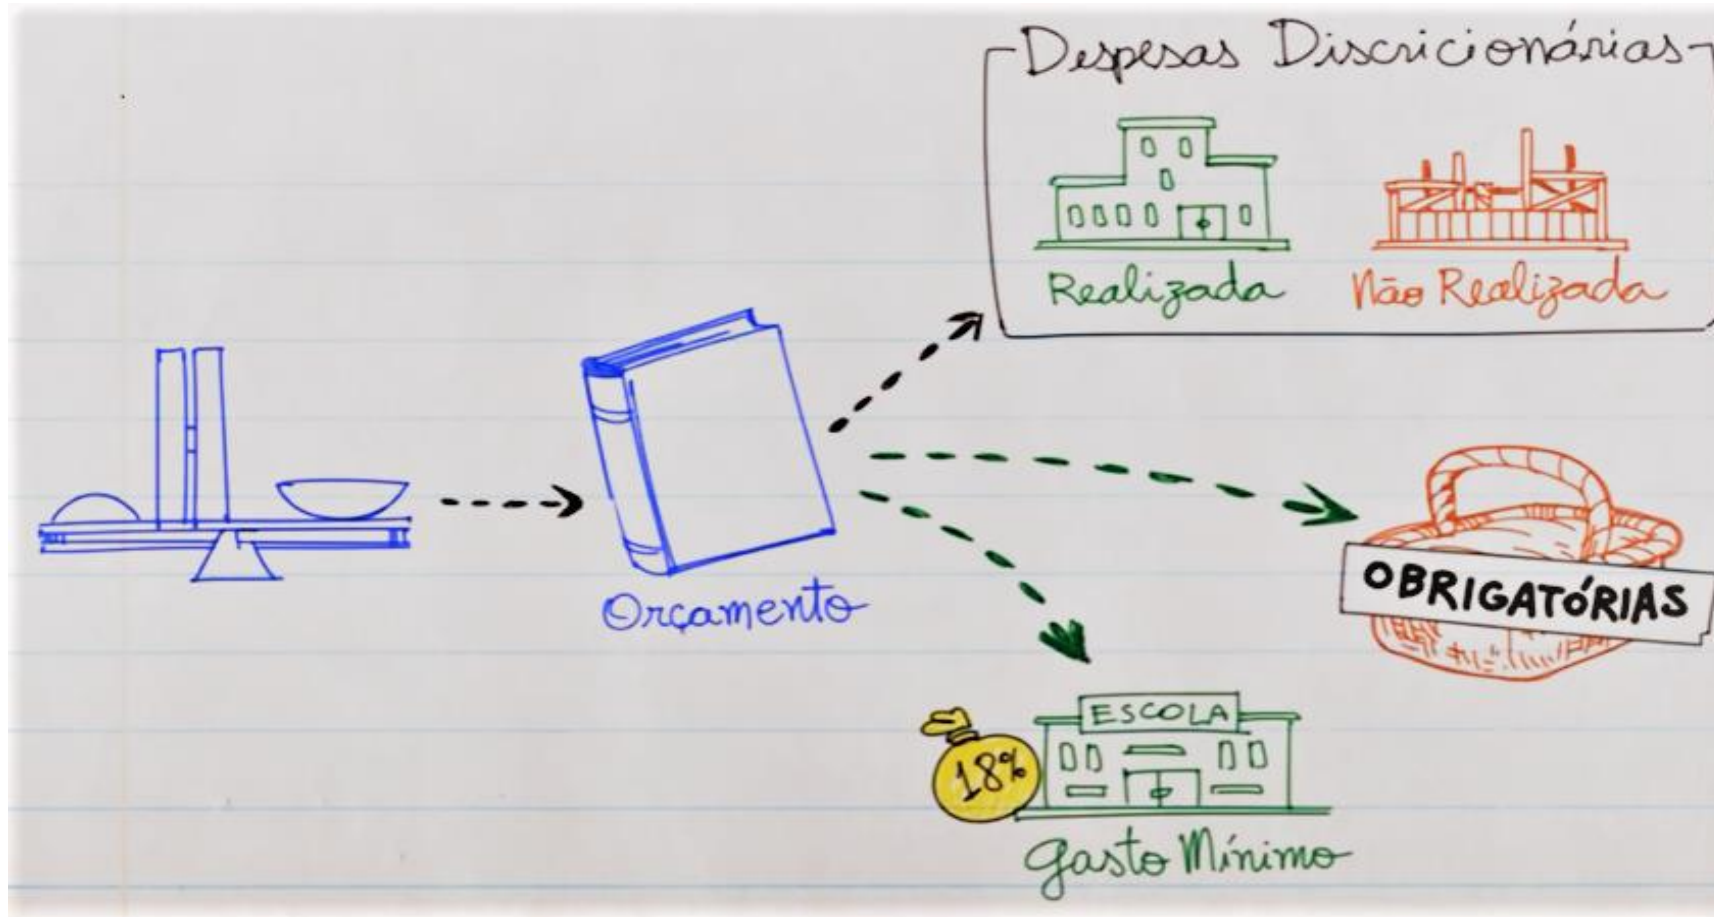 Despesas Discricionárias
Realizada
Não Realizada
Orçamento
OBRIGATÓRIAS
ESCOLA
18%
Gasto Mínimo